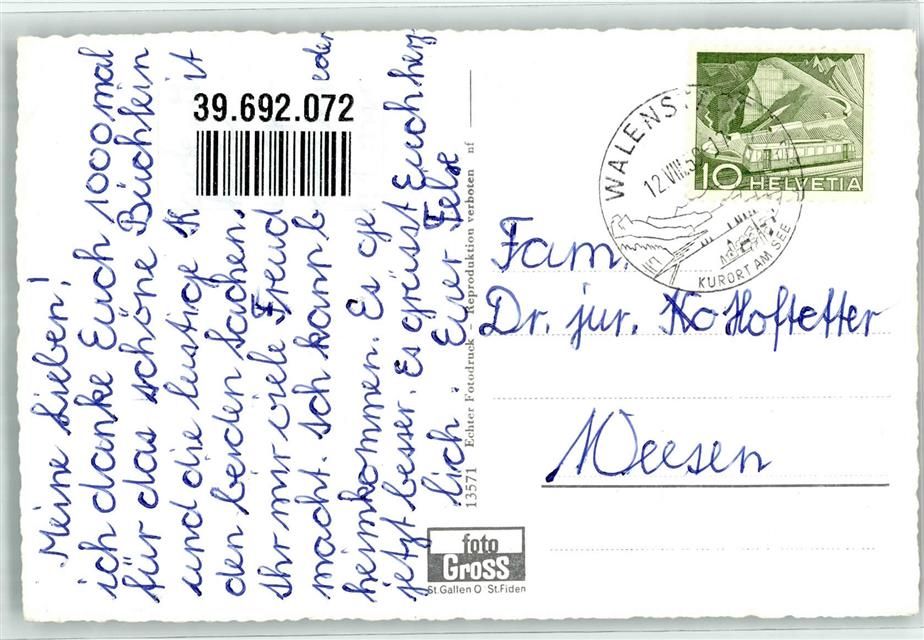 Meine Lieben!
ich danke Euch 1000 mal
für das schöne Büchlein
und die lustige K it
den beiden Sachen.
Ihr mir viele Freud
macht. Ich kann b eder
heimkommen. Es ge
jetzt besser. Es grüsst Euch herz
lich. Euer Felse
39.692.072
13571 Echter Fotodruck - Reproduktion verboten nf
foto
Gross
St. Gallen O St. Fiden
WALENS
12.VIII.5
KURORT AM SEE
10 HELVETIA
Fam.
Dr. jur. Hoffstetter
Weesen